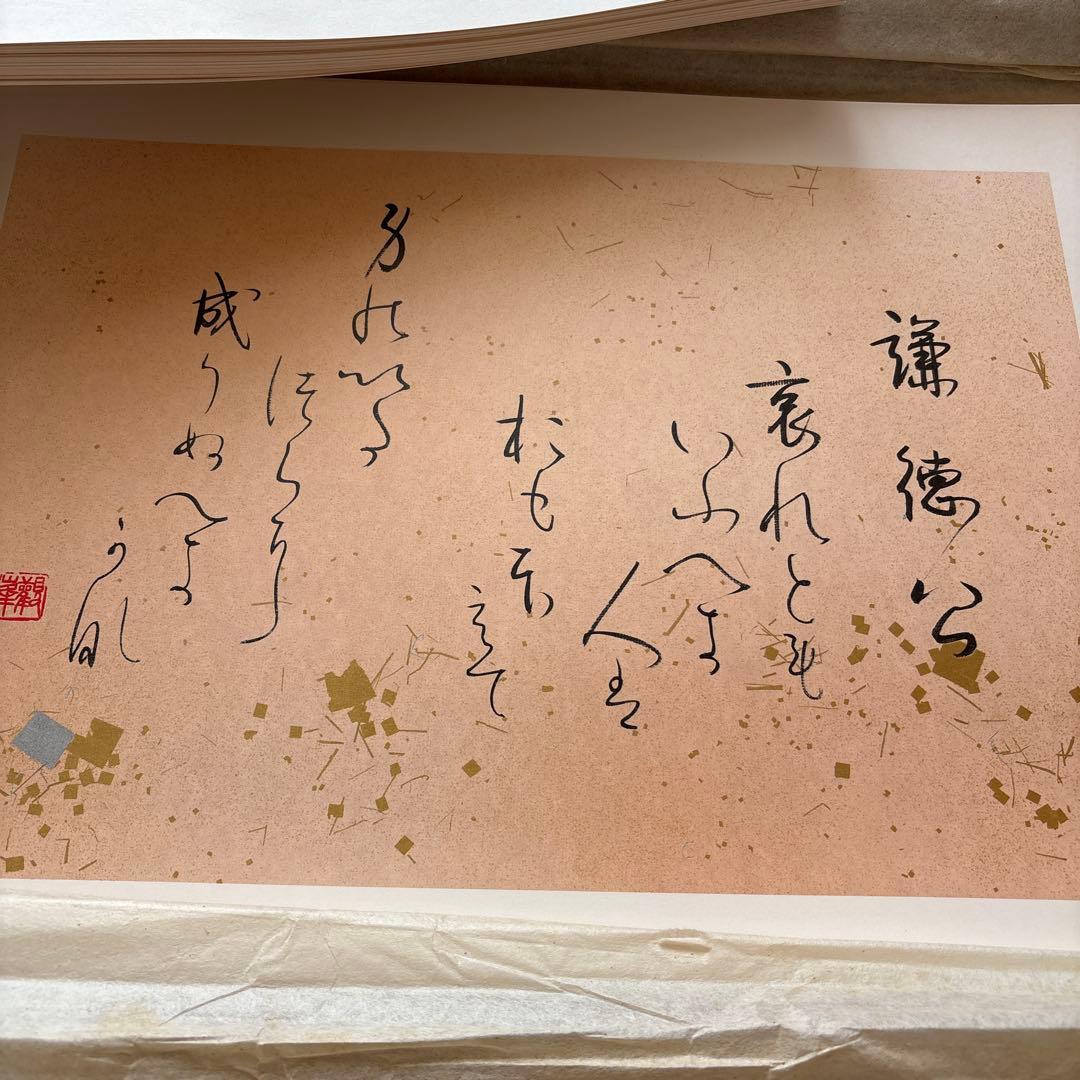 謙徳公
哀れとも
いふへき
人は
おもほ
えて
身のいた
つらに
成りぬへき
かな